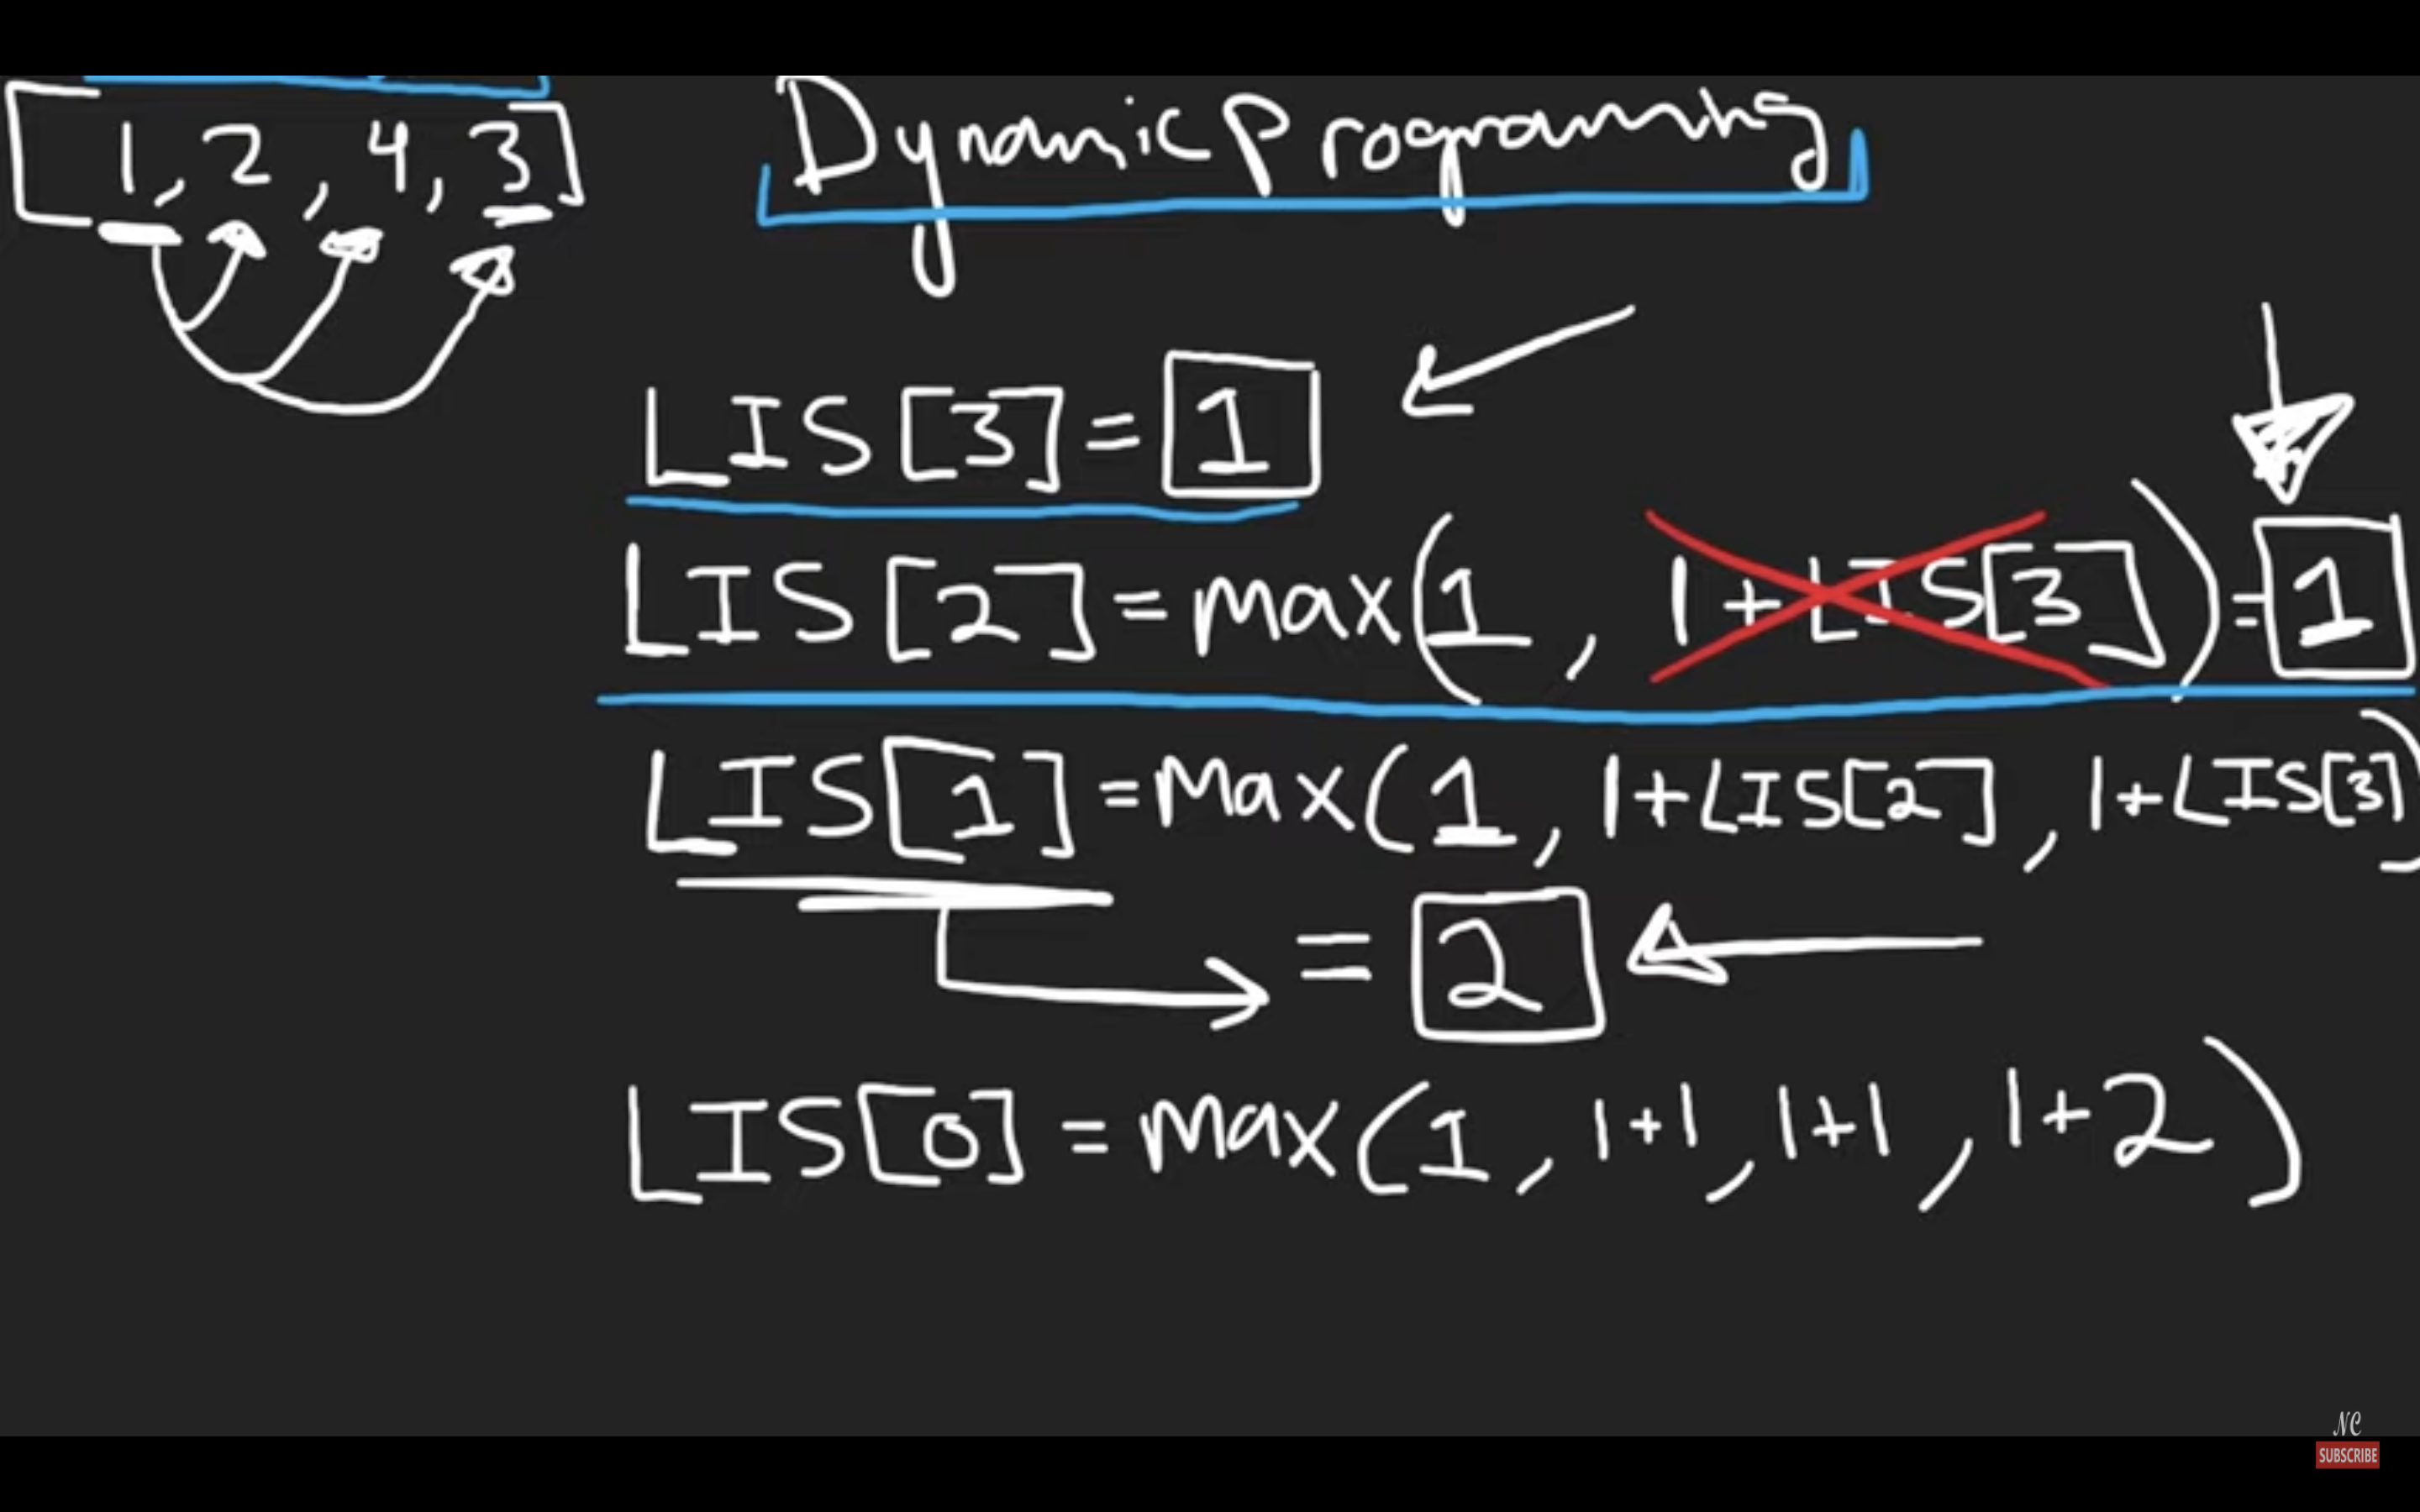 [1, 2, 4, 3]
Dynamic Programming
LIS[3] = 1
LIS[2] = max(1, 1+LIS[3]) = 1
LIS[1] = Max(1, 1+LIS[2], 1+LIS[3])
= 2
LIS[0] = max(1, 1+1, 1+1, 1+2)
NC
SUBSCRIBE